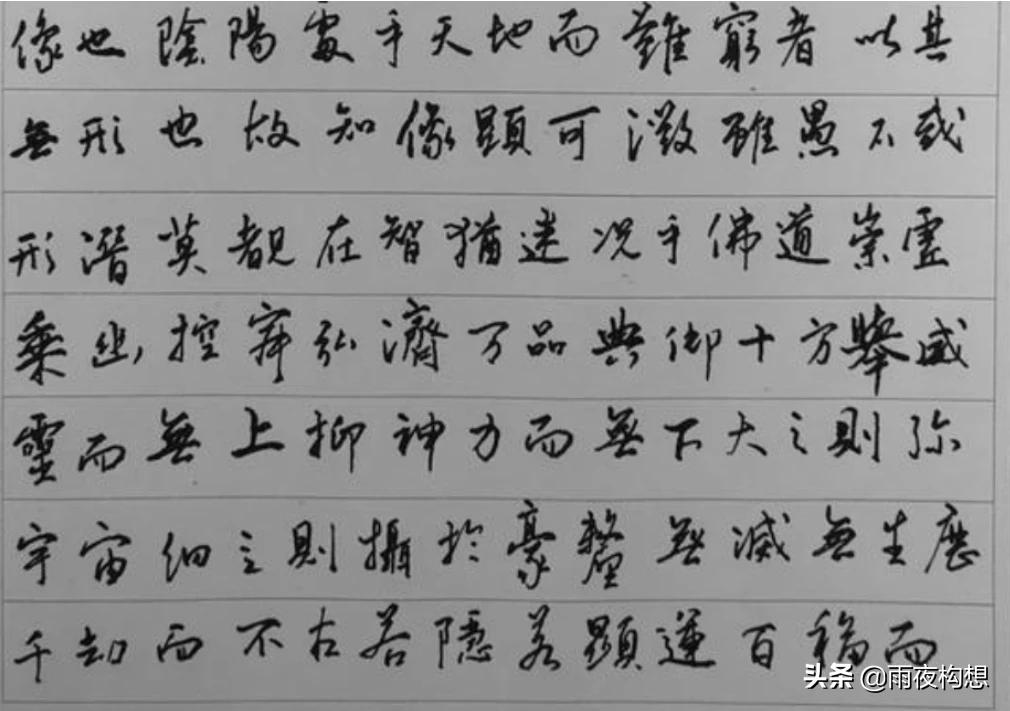 像也陰陽處乎天地而難窮者以其
無形也故知像顯可徵雖愚不或
形潛莫覩在智猶迷况乎佛道崇虛
乘幽控寂弘濟万品典御十方舉威
靈而無上抑神力而無下大之則弥
宇宙細之則攝於豪釐無滅無生歷
千劫而不古若隱若顯運百福而
头条 @雨夜构想